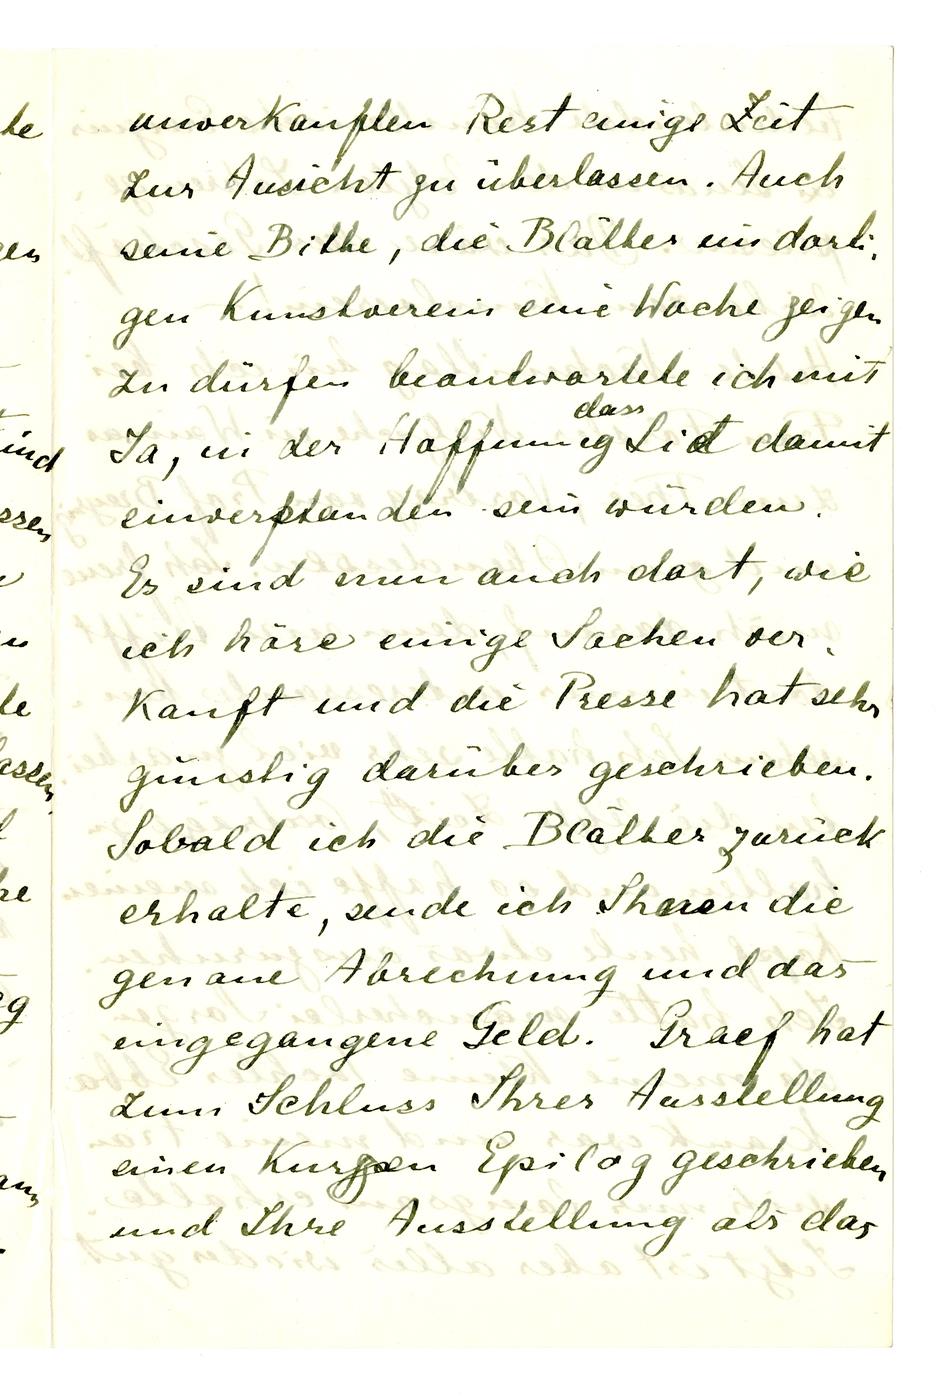 unverkauften Rest einige Zeit
zur Ansicht zu überlassen. Auch
seine Bitte, die Blätter im dorti-
gen Kunstverein eine Woche zeigen
zu dürfen beantwortete ich mit
dass
Ja, in der Hoffnung Sie damit
einverstanden sein würden.
Es sind nun auch dort, wie
ich höre einige Sachen ver-
kauft und die Presse hat sehr
günstig darüber geschrieben.
Sobald ich die Blätter zurück
erhalte, sende ich Ihnen die
genaue Abrechnung und das
eingegangene Geld. Graef hat
zum Schluss Ihrer Ausstellung
einen kurzen Epilog geschrieben
und Ihre Ausstellung als das